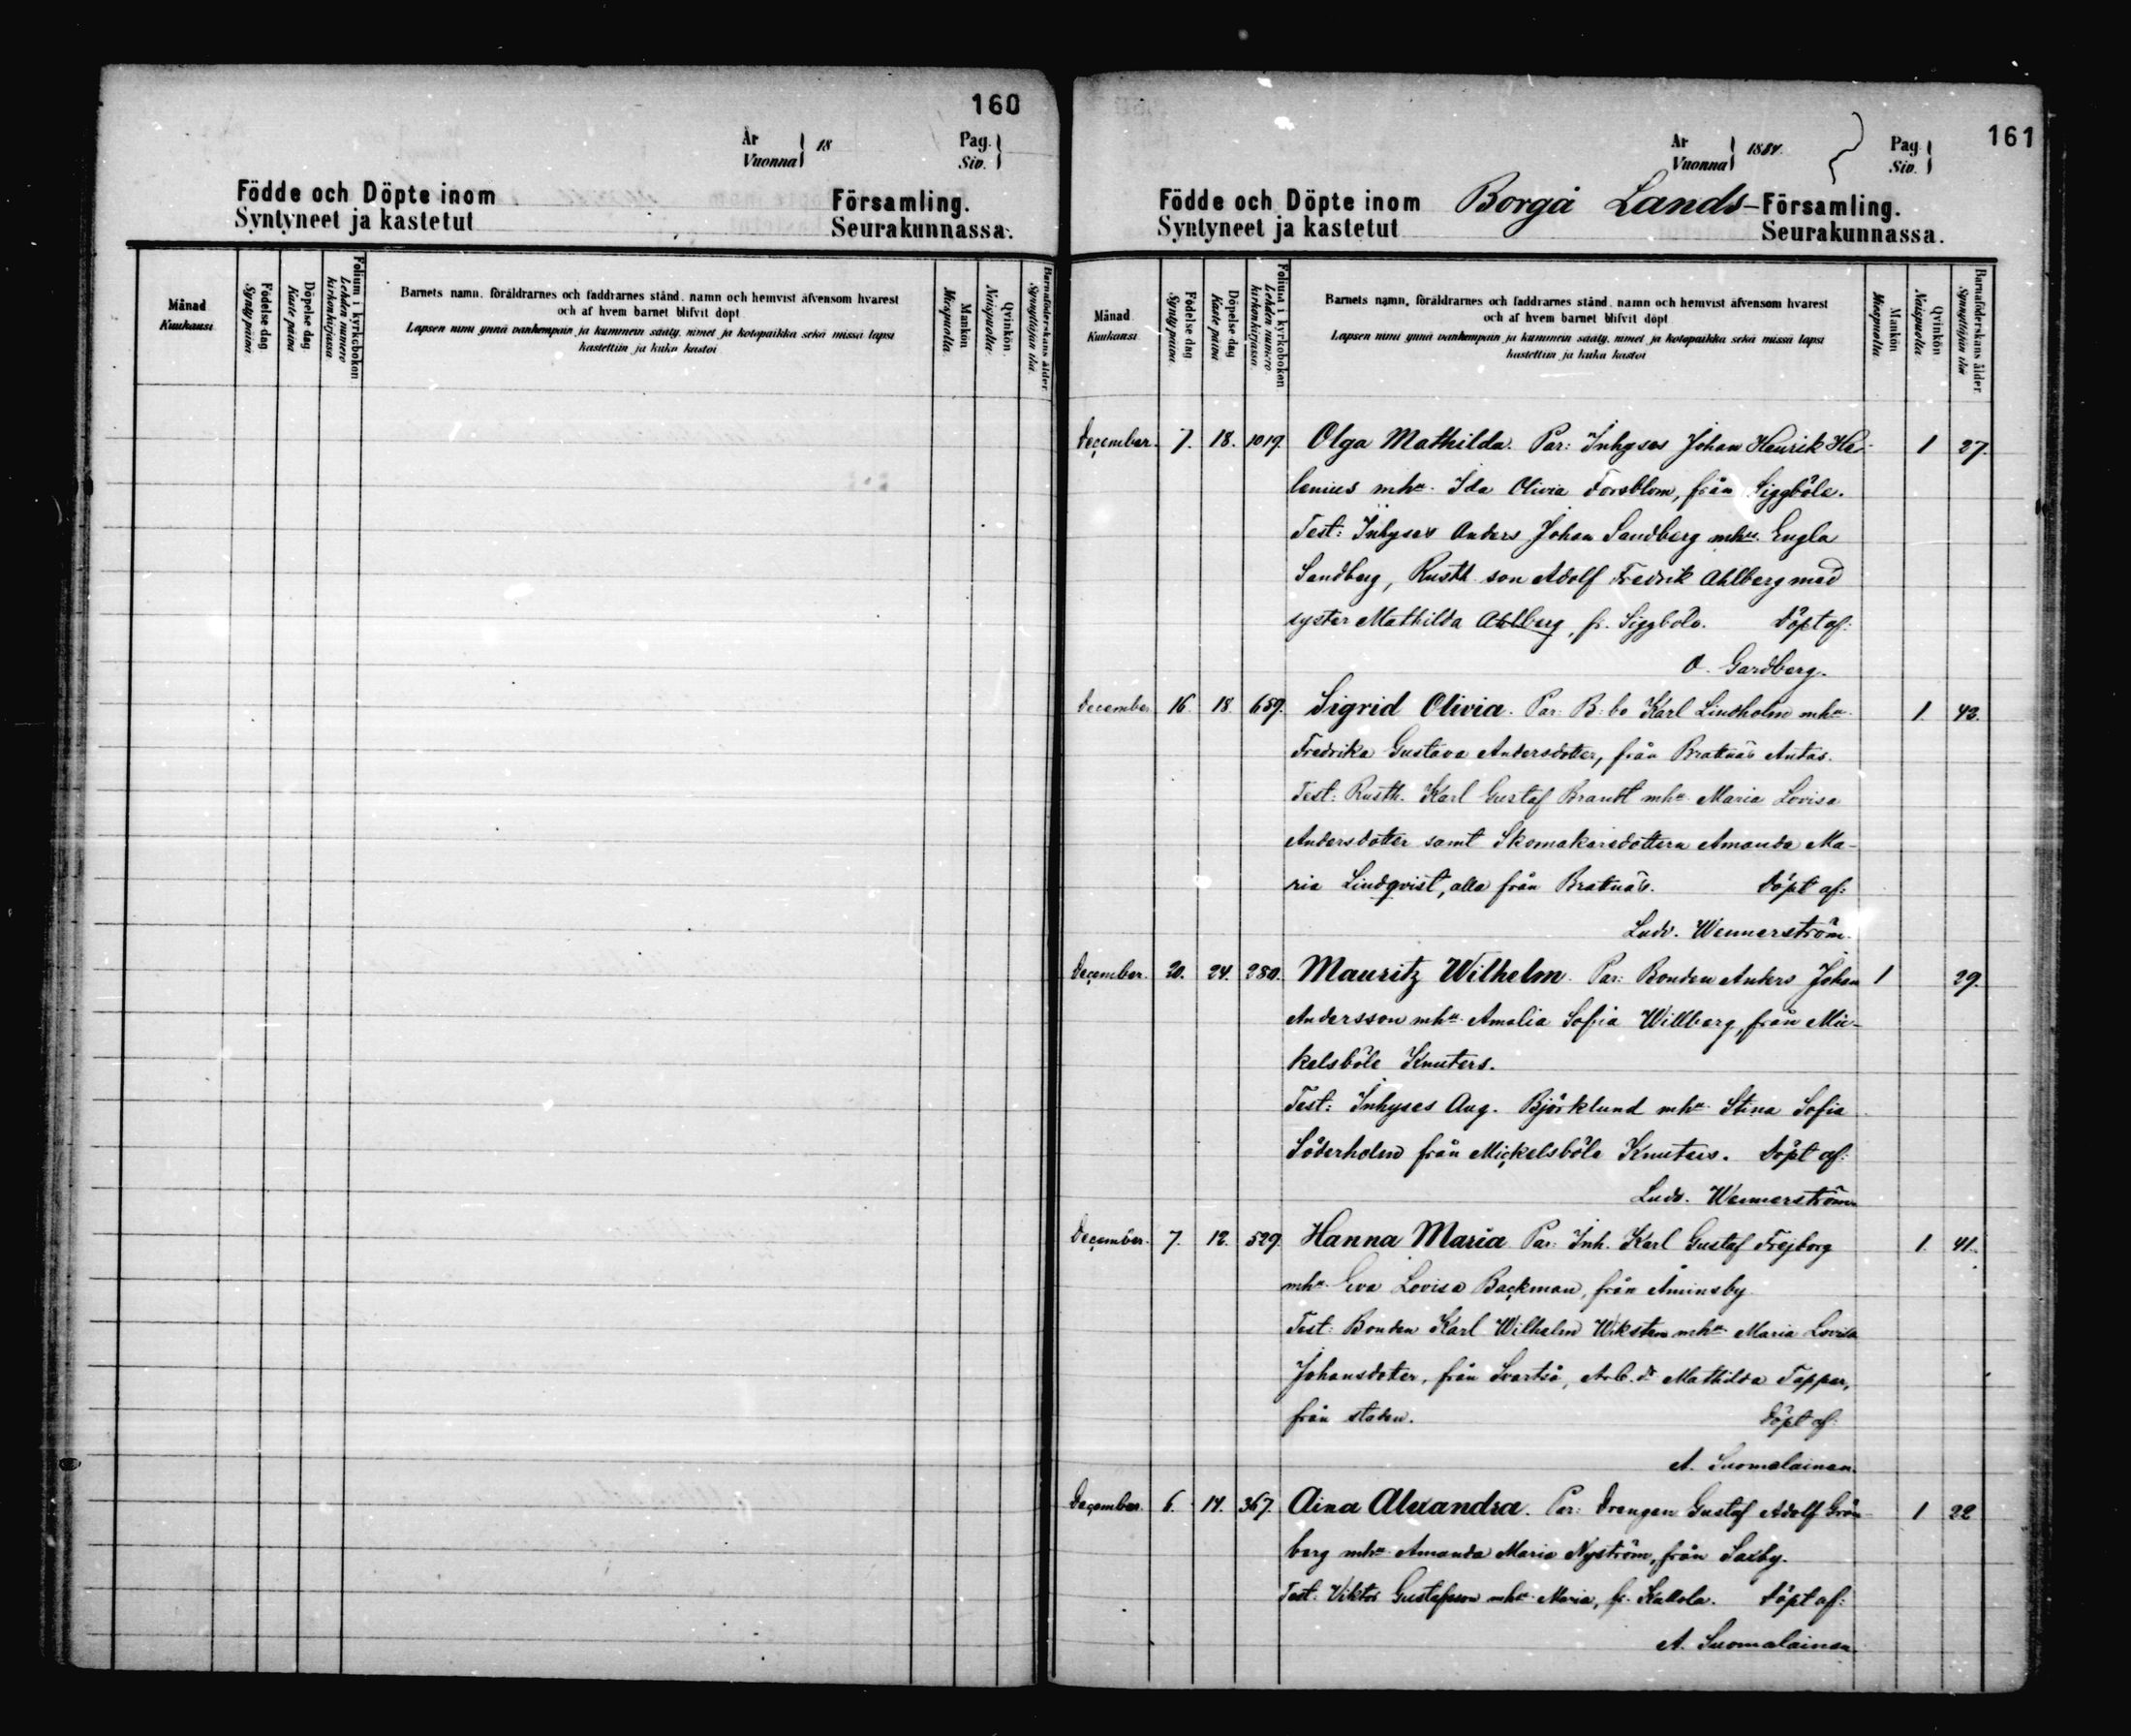 160
År
Vuonna } 18
Pag.
Siv. }
Födde och Döpte inom Församling.
Syntyneet ja kastetut Seurakunnassa.
Månad
Kuukausi
Födelse dag.
Synty päivä
Döpelse dag.
Kaste päivä
Folium i kyrkoboken
Lehden numero kirkonkirjassa
Barnets namn, föräldrarnes och faddrarnes stånd, namn och hemvist äfvensom hvarest
och af hvem barnet blifvit döpt
Lapsen nimi ynnä vanhempain ja kummein sääty, nimet ja kotopaikka sekä missä lapsi
kastettiin ja kuka kastoi
Mankön
Miespuolta.
Qvinkön.
Naispuolta.
Barnaföderskans ålder
Synnyttäjän ikä.
161
År
Vuonna } 1884.
Pag
Siv. }
Födde och Döpte inom Borgå Lands- Församling.
Syntyneet ja kastetut Seurakunnassa.
Månad
Kuukausi
Födelse dag
Synty päivä
Döpelse dag
Kaste päivä
Folium i kyrkoboken
Lehden numero kirkonkirjassa.
Barnets namn, föräldrarnes och faddrarnes stånd, namn och hemvist äfvensom hvarest
och af hvem barnet blifvit döpt
Lapsen nimi ynnä vanhempain ja kummein sääty, nimet ja kotopaikka sekä missä lapsi
kastettiin ja kuka kastoi
Mankön
Miespuolta
Qvinkön
Naispuolta
Barnaföderskans ålder
Synnyttäjän ikä
December. 7. 18. 1019. Olga Mathilda. Par: Inhyses Johan Henrik He- 1 27.
lenius mhu. Ida Olivia Forsblom, från Siggböle.
Test: Inhyses Anders Johan Sandberg mhu. Engla
Sandberg, Rusth. son Adolf Fredrik Ahlberg med
syster Mathilda Ahlberg, fr. Siggböle. Döpt af:
O. Gardberg.
December 16. 18. 659. Sigrid Olivia. Par: B: bo Karl Lindholm mhu. 1. 43.
Fredrika Gustava Andersdotter, från Bratnäs Antas.
Test: Rusth. Karl Gustaf Brandt mhu. Maria Lovisa
Andersdotter samt Skomakaredottern Amanda Ma-
ria Lindqvist, alla från Bratnäs. Döpt af:
Ludv. Wennerström.
December. 20. 24. 280. Mauritz Wilhelm. Par: Bonden Anders Johan 1 29.
Andersson mhu. Amalia Sofia Willberg, från Mic-
kelsböle Knuters.
Test: Inhyses Aug. Björklund mhu. Stina Sofia
Söderholm från Mickelsböle Knuters. Döpt af:
Ludv. Wennerström
December. 7. 12. 529. Hanna Maria. Par: Inh. Karl Gustaf Frejborg 1. 41.
mhu. Eva Lovisa Backman, från Åminsby
Test: Bonden Karl Wilhelm Wiksten mhu. Maria Lovisa
Johansdoter, från Svartså, Arb. dr Mathilda Tapper,
från staden. Döpt af:
A. Suomalainen.
December. 6. 14. 367. Aina Alexandra. Par: Drengen Gustaf Adolf Grön- 1 22
berg mhu. Amanda Maria Nyström, från Saxby.
Test: Viktor Gustafsson mhu. Maria, fr. Kallola. Döpt af:
A. Suomalainen